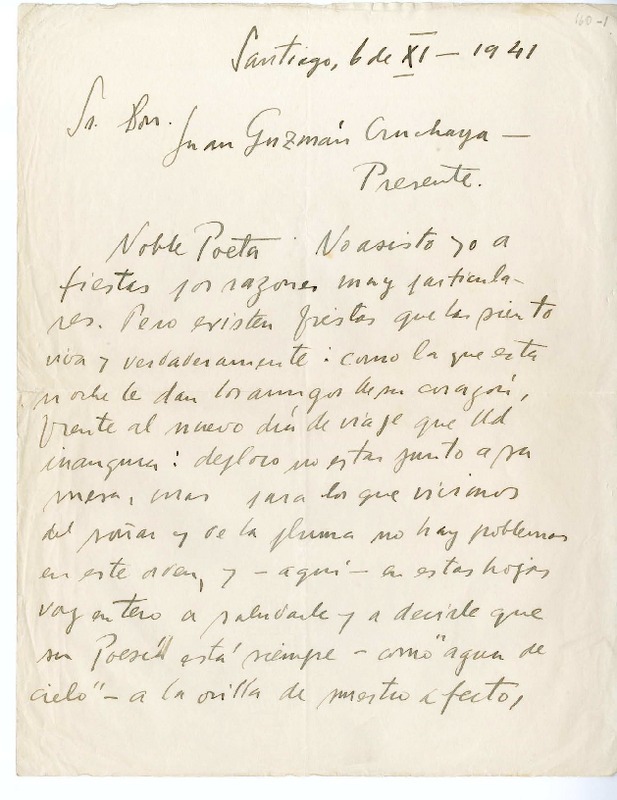 160-1
Santiago, 6 de XI - 1941
Sr. Don.
Juan Guzmán Cruchaga -
Presente.
Noble Poeta: No asisto yo a
fiestas por razones muy particula-
res. Pero existen fiestas que las siento
viva y verdaderamente: como la que esta
noche le dan los amigos de su corazón,
frente al nuevo día de viaje que Ud
inaugura: deploro no estar junto a su
mesa, mas para los que vivimos
del soñar y de la pluma no hay problemas
en este orden, y - aquí - en estas hojas
voy entero a saludarle y a decirle que
su Poesía está siempre - como "agua de
cielo" - a la orilla de nuestro afecto,